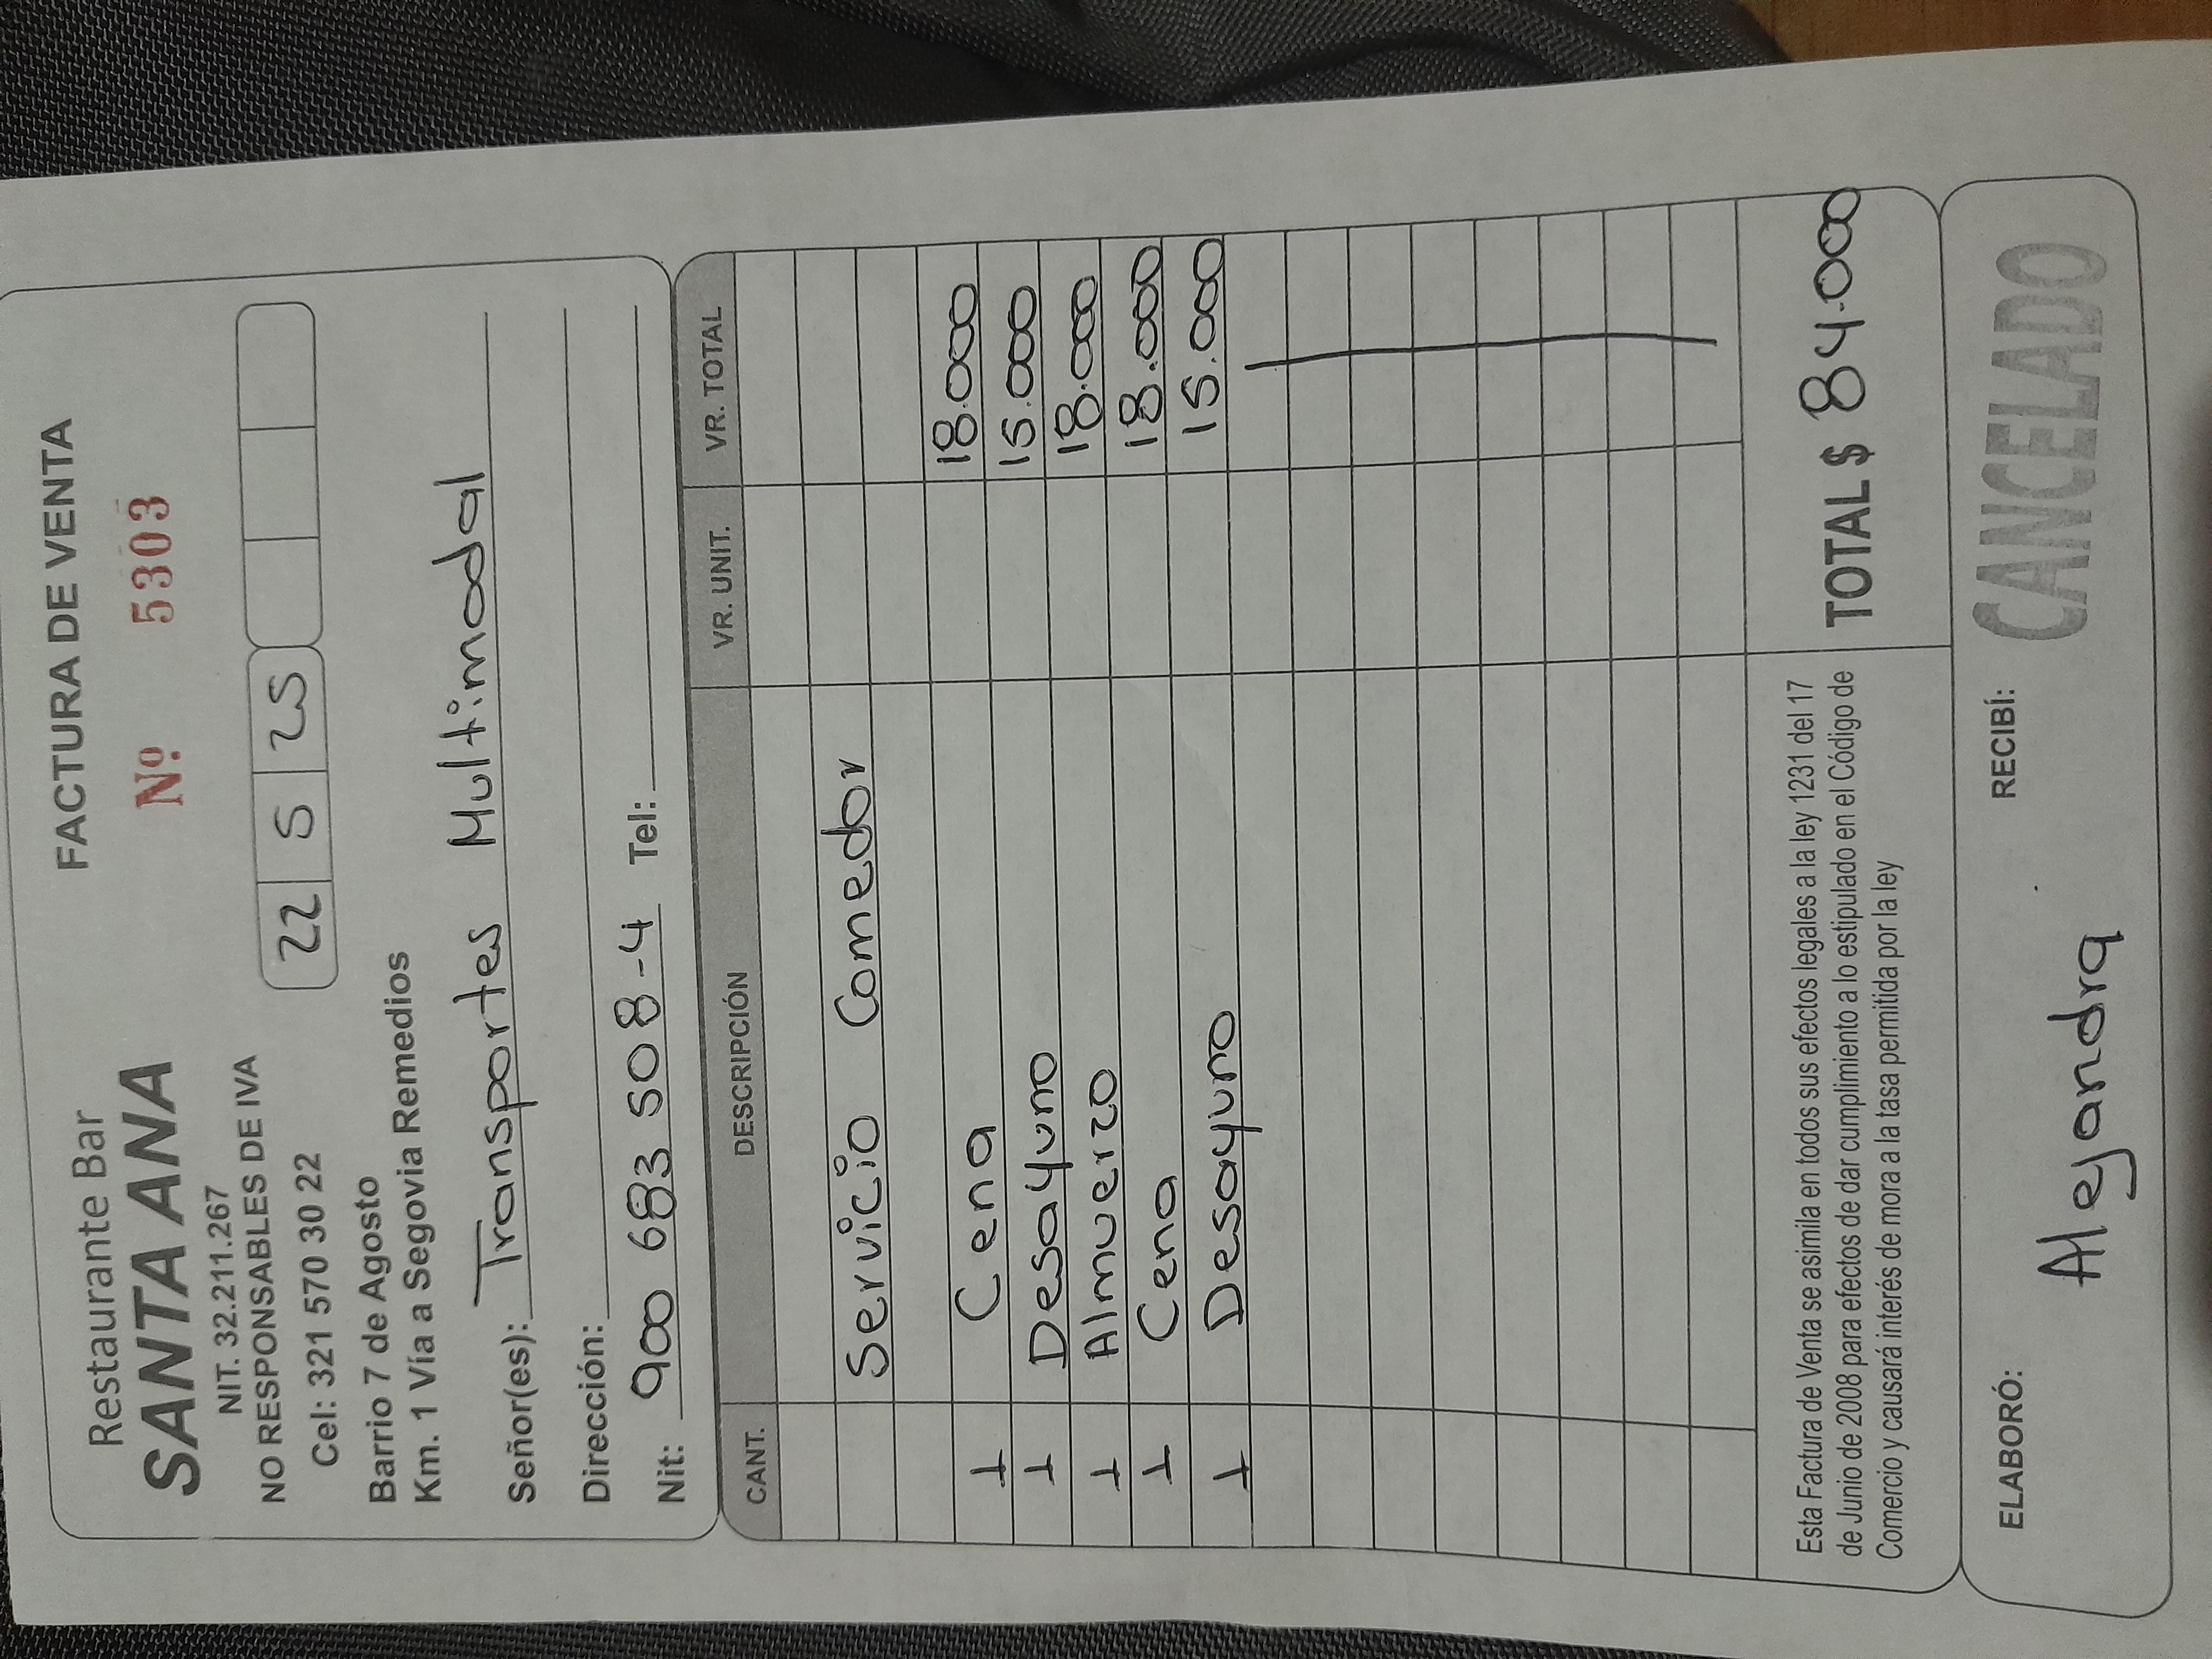 Restaurante Bar
SANTA ANA
NIT. 32.211.267
NO RESPONSABLES DE IVA
Cel: 321 570 30 22
Barrio 7 de Agosto
Km. 1 Vía a Segovia Remedios
FACTURA DE VENTA
Nº. 5303
22 5 25
Señor(es): Transportes Multimodal
Dirección:
Nit: 900 683 508-4 Tel:
CANT. DESCRIPCIÓN VR. UNIT. VR. TOTAL
Servicio Comedor
1 Cena 18.000
1 Desayuno 15.000
1 Almuerzo 18.000
1 Cena 18.000
1 Desayuno 15.000
Esta Factura de Venta se asimila en todos sus efectos legales a la ley 1231 del 17
de Junio de 2008 para efectos de dar cumplimiento a lo estipulado en el Código de
Comercio y causará interés de mora a la tasa permitida por la ley
TOTAL $ 84.000
ELABORÓ: Alejandra
RECIBÍ: CANCELADO